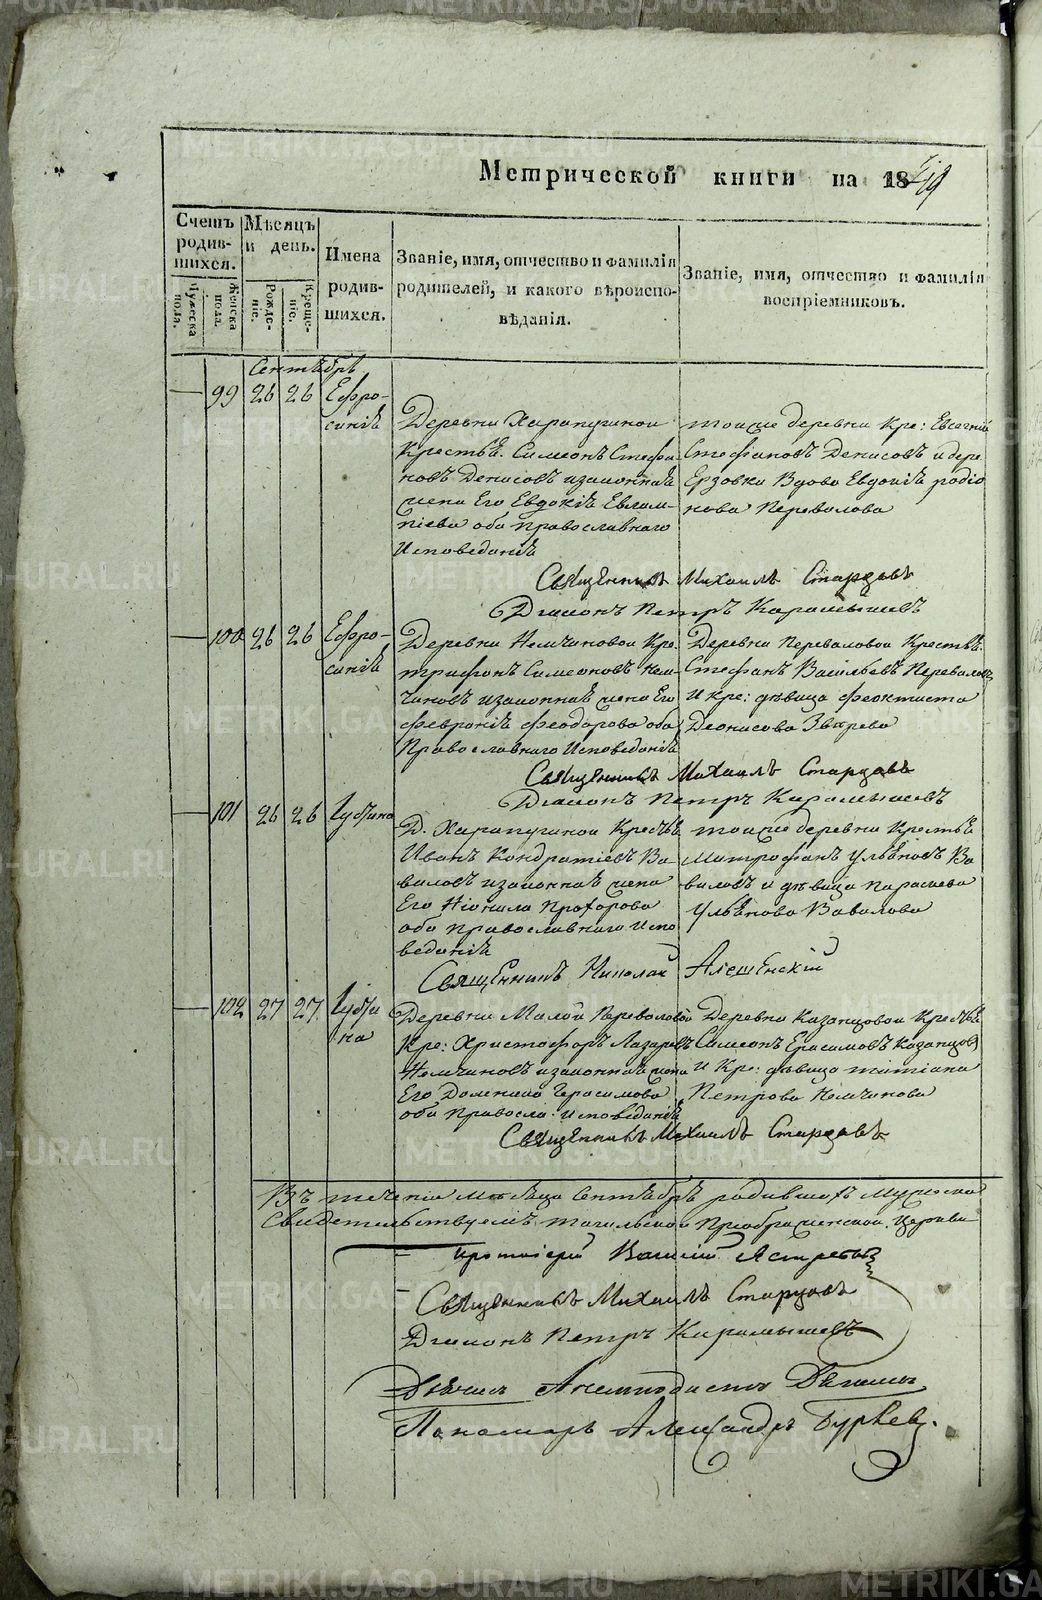 METRIKI.GASO-URAL.RU
Метрической книги на 1849
Счетъ родившихся.
Мѣсяцъ и день.
Имена родившихся.
Званіе, имя, отчество и фамилія родителей, и какого вѣроисповѣданія.
Званіе, имя, отчество и фамилія воспріемниковъ.
Мужеска пола.
Женска пола.
Рожденіе.
Крещеніе.
Сентѣбрь
99 26 26 Ефросиніѣ
Деревни Харапугиной
Крестьѣ. Симеонъ Стефановъ Денисовъ изаконнаѣ
жена Его Евдокіѣ Евлампіева оба православнаго
Исповеданіѣ
тоиже деревни Кре: Евсегній
Стефановъ Денисовъ и дере
Ерзовки Вдова Евдокіѣ родіонова Перевалова
Свѣщенникъ Михаилъ Старцовъ
Дьяконъ Петръ Карамышевъ
100 26 26 Ефросиніѣ
Деревни Немчиновой Кре.
трифонъ Симеоновъ Немчиновъ изаконнаѣ жена Его
февроніѣ феодорова оба
Православнаго Исповеданіѣ
Деревни Переваловой Крестьѣ.
Стефанъ Васильевъ Переваловъ
И Кре: дѣвица феоктиста
Деонисова Зверева
Свѣщенникъ Михаилъ Старцовъ
Дьяконъ Петръ Карамышевъ
101 26 26 Іустина
Д. Харапугиной Кресьѣ.
Иванъ Кондратіевъ Вавиловъ изаконнаѣ жена
Его Ніонила Прохорова
оба православнаго исповеданіѣ
тоиже деревни Крестьѣ
Митрофанъ Ульѣновъ Вавиловъ и дѣвица Параскева
Ульѣнова Вавилова
Священникъ Николай
102 27 27 Іустина
Деревни Малой Переваловой
Кре: Христофоръ Лазаревъ
Немчиновъ изаконнаѣ жена
Его Домника Герасимова
оба Правосла: исповеданіѣ
Деревни Казанцовой Кресьѣ
Симеонъ Ерасимовъ Казанцовъ
И Кре: дѣвица татіана
Петрова Немчинова
Свѣщенникъ Михаилъ Старцовъ
Въ теченіи месѣца Сентѣбрѣ родившихъ
Свидетельствуемъ тагильской Преображенской Церкви
протоіерей Василій Ястребовъ
Свѣщенникъ Михаилъ Старцовъ
Дьяконъ Петръ Карамышевъ
Дьячекъ
Пономарь Александръ